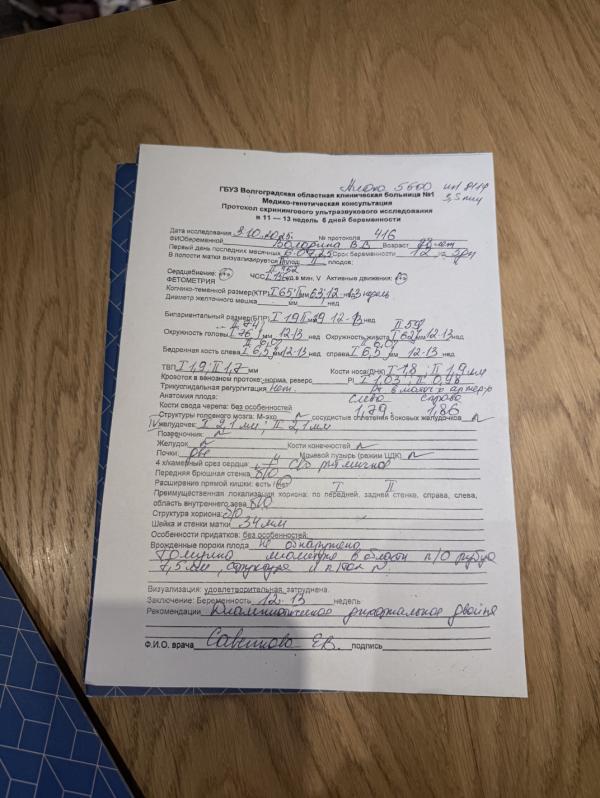 5600
3,5 мгц
ГБУЗ Волгоградская областная клиническая больница №1
Медико-генетическая консультация
Протокол скринингового ультразвукового исследования
в 11 — 13 недель 6 дней беременности
Дата исследования 3.10.2025г № протокола 416
ФИО беременной В.В. Возраст лет
Первый день последних месячных Срок беременности 12 3
В полости матки визуализируется плод: II плодов;
II 152
Сердцебиение: ЧСС I уд.в мин. V Активные движения:
ФЕТОМЕТРИЯ
Копчико-теменной размер(КТР) I 65 II мм 63, 12-13 недель
Диаметр желточного мешка - мм нед
Бипариетальный размер(БПР) I 19 II мм 19 12-13 нед
II 74 II 59
Окружность головы I 76 мм 12-13 нед Окружность живота I 62 мм 12-13 нед
Бедренная кость слева I 6,5 мм 12-13 нед справа I 6,5 мм 12-13 нед
ТВП I 1,9; II 1,7 мм Кости носа(ДНК) I 1,8; II 1,9 мм
Кровоток в венозном протоке: норма, реверс PI I 1,03; II 0,98
Трикуспидальная регургитация нет.
Анатомия плода: слева справа
Кости свода черепа: без особенностей 1,79 1,86
Структуры головного мозга: М-эхо N сосудистые сплетения боковых желудочков N
IV желудочек: I 2,1 мм; II 2,1 мм
Позвоночник: N
Желудок N Кости конечностей N
Почки: Мочевой пузырь (режим ЦДК) N
4 х/камерный срез сердца: ритмичное
Передняя брюшная стенка б/о
Расширение прямой кишки: есть / нет I II
Преимущественная локализация хориона: по передней, задней стенке, справа, слева,
область внутреннего зева б/о
Структура хориона: б/о
Шейка и стенки матки 34 мм
Особенности придатков: без особенностей
Врожденные пороки плода не обнаружено
Толщина миометрия в области п/о рубца
7,5 мм, структура и N
Визуализация: удовлетворительная, затруднена.
Заключение: Беременность 12-13 недель
Рекомендации Диамниотическая дихориальная двойня
Ф.И.О. врача Е.В. подпись